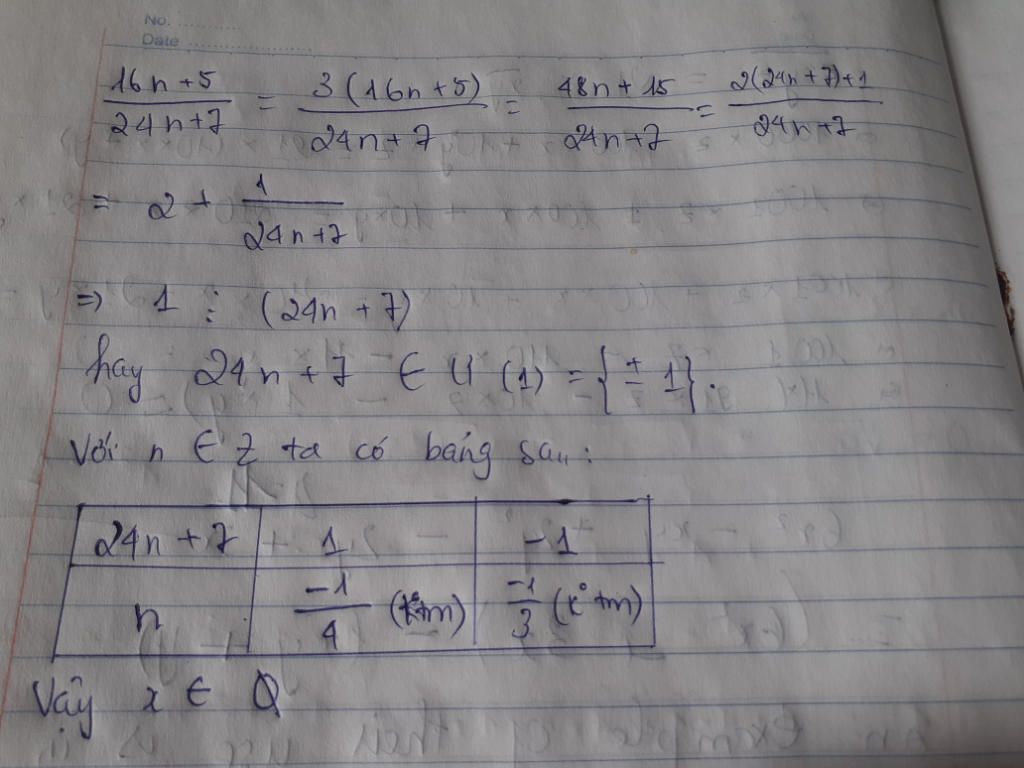 No. ........
Date ........................
16n+5/24n+7 = 3(16n+5)/24n+7 = 48n+15/24n+7 = 2(24n+7)+1/24n+7
= 2 + 1/24n+7
=> 1 ⋮ (24n+7)
hay 24n+7 ∈ Ư(1) = {± 1}.
Với n ∈ Z ta có bảng sau:
24n+7 1 -1
n -1/4 (k°tm) -1/3 (k°tm)
Vậy x ∈ Q